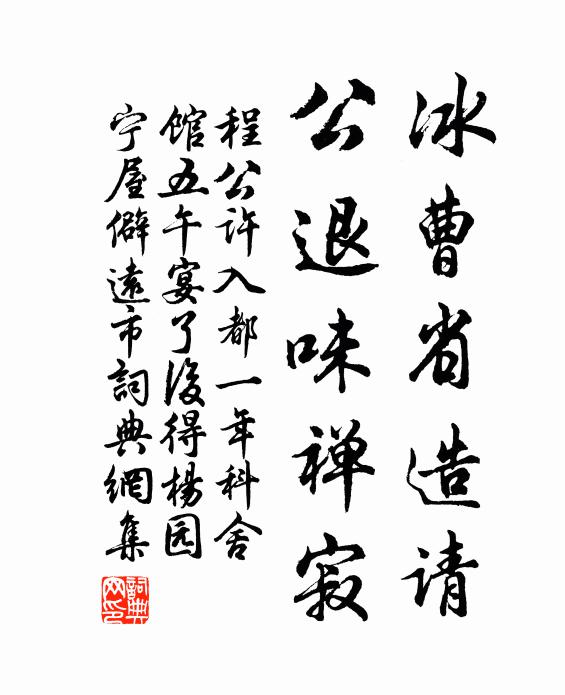 冰曹省造请
公退味禅寂
程公许入都一年科舍
馆五午宴了後得杨园
宁屋僻遠市詞典網集
詞典
网印